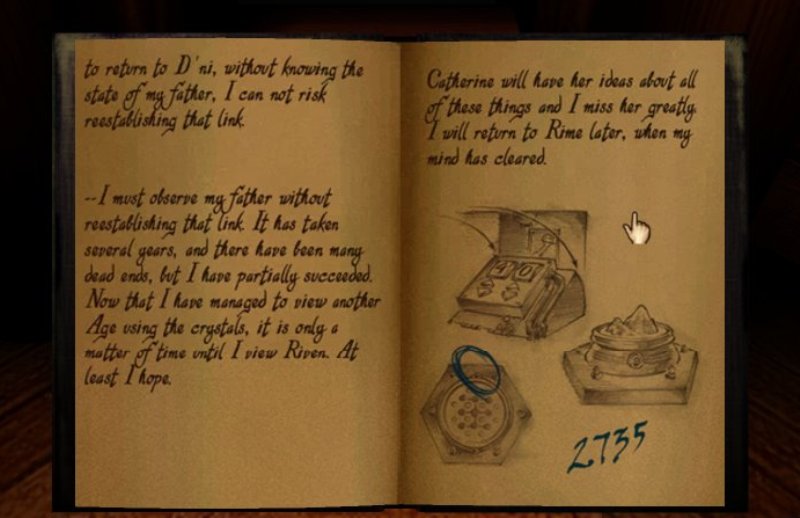 to return to D'ni, without knowing the
state of my father, I can not risk
reestablishing that link.
--I must observe my father without
reestablishing that link. It has taken
several years, and there have been many
dead ends, but I have partially succeeded.
Now that I have managed to view another
Age using the crystals, it is only a
matter of time until I view Riven. At
least I hope.
Catherine will have her ideas about all
of these things and I miss her greatly.
I will return to Rime later, when my
mind has cleared.
40
2735